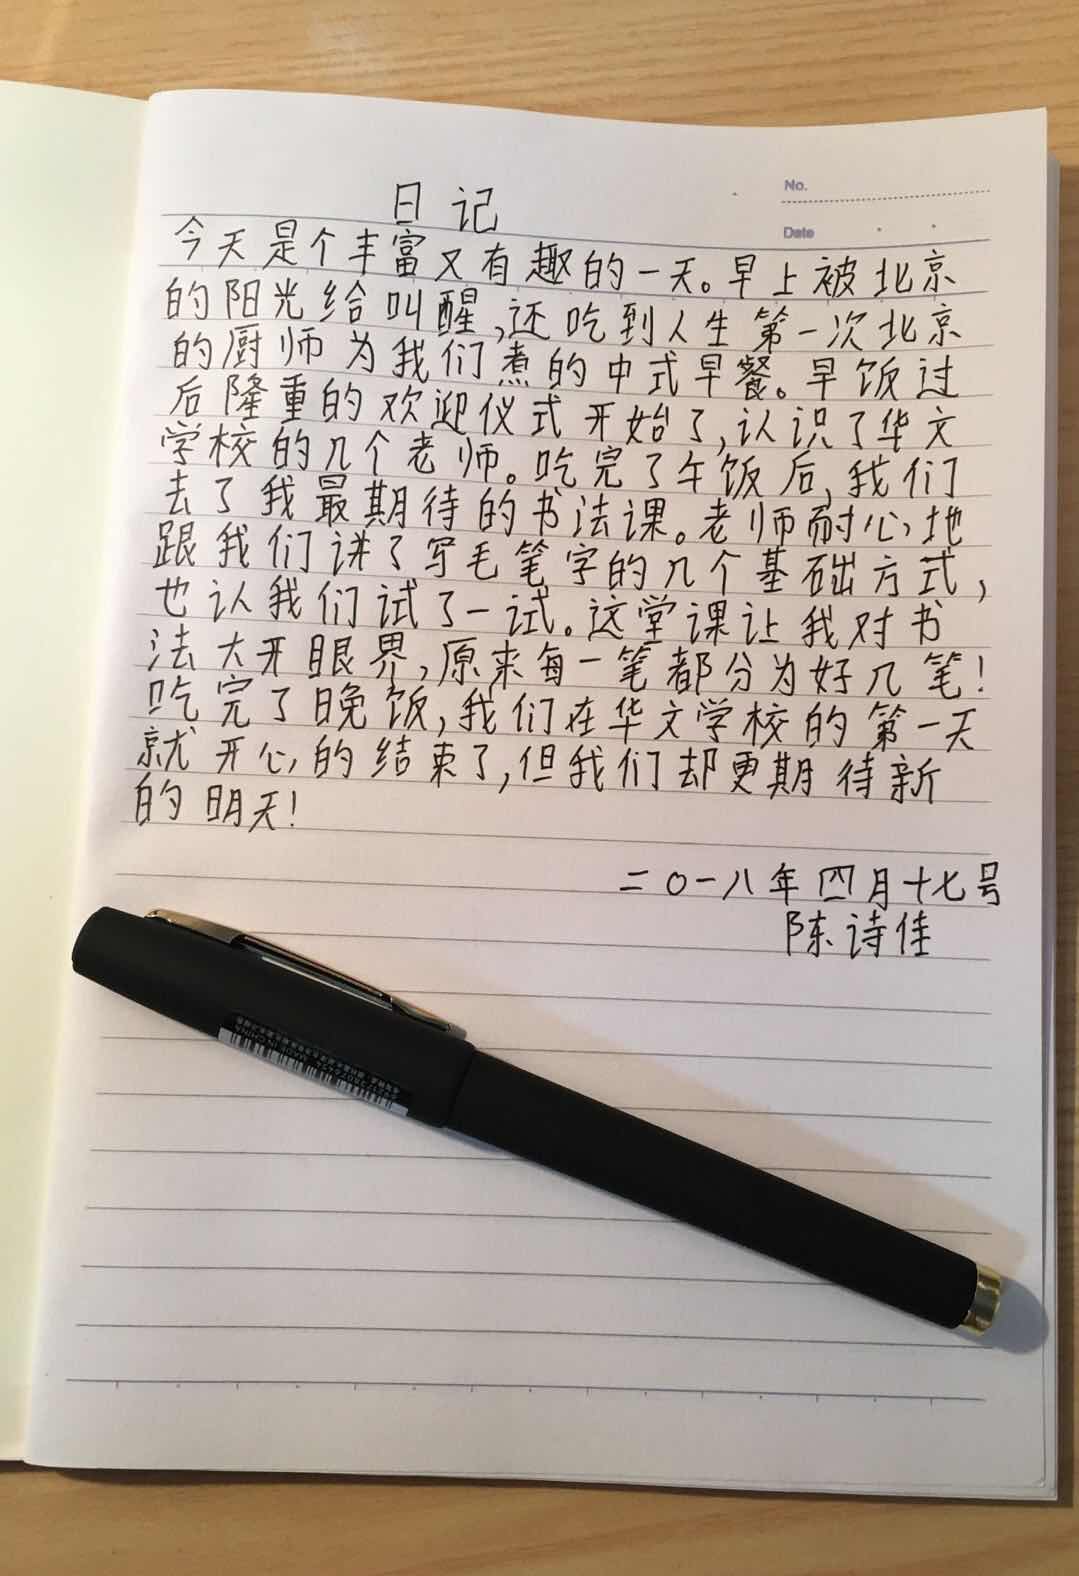 No.
Date
日记
今天是个丰富又有趣的一天。早上被北京
的阳光给叫醒,还吃到人生第一次北京
的厨师为我们煮的中式早餐。早饭过
后隆重的欢迎仪式开始了,认识了华文
学校的几个老师。吃完了午饭后,我们
去了我最期待的书法课。老师耐心地
跟我们讲了写毛笔字的几个基础方式,
也认我们试了一试。这堂课让我对书
法大开眼界,原来每一笔都分为好几笔!
吃完了晚饭,我们在华文学校的第一天
就开心的结束了,但我们却更期待新
的明天!
二〇一八年四月十七号
陈诗佳